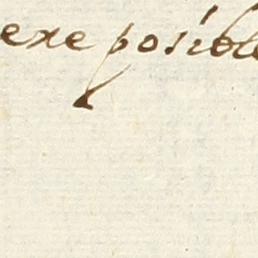 exe posible